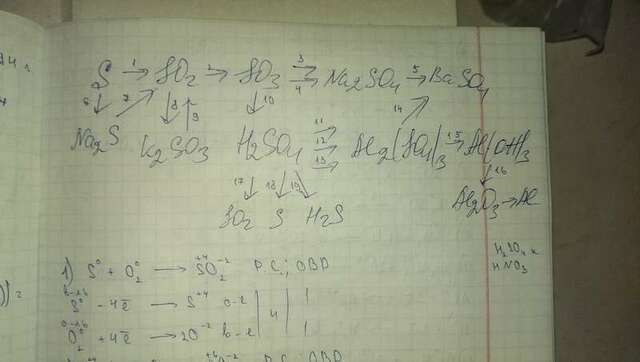 S →¹ SO₂ →² SO₃ ³⇉₄ Na₂SO₄ →⁵ BaSO₄
6 ↓ 7 ↗ ↓8 ↑9 ↓10 14 ↗
Na₂S K₂SO₃ H₂SO₄ 11 → 12 → 13 → Al₂(SO₄)₃ →¹⁵ Al(OH)₃
17 ↓ 18 ↓ 19 ↘ ↓ 16
SO₂ S H₂S Al₂O₃ → Al
H₂SO₄ к
HNO₃
1) S⁰ + O₂⁰ → S⁺⁴O₂⁻² Р.С.; ОВР
S⁰ - 4ē → S⁺⁴ 4 1
O₂⁰ + 4ē → 2O⁻² 1